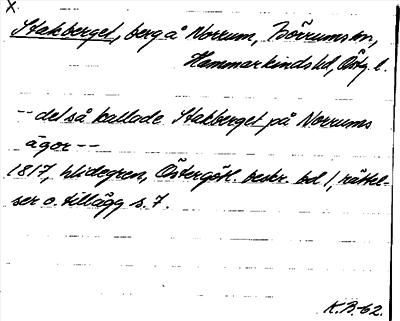 X
Stakberget, berg å Norrum, Börrums sn,
Hammarkinds hd, Östg. l.
-- det så kallade Stakberget på Norrums
ägor --
1817, Widegren, Östergötl. beskr. bd 1, rättel-
ser o. tillägg s. 7.
K.B.-62.